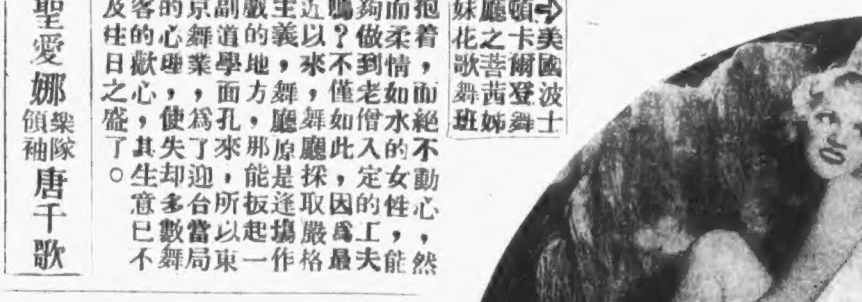 ➩美國波士
頓卡爾登舞
廳之善茜姊
妹花歌舞班
抱着,而絕不動心,然
而柔情如水的女性,能
夠做到老僧入定的工夫
嗎?不僅如此,因爲最
近以來,舞廳採取嚴格
主義,舞廳原是逢場作
戲的地方,那能扳起一
副道學面孔來,所以東
京舞業,爲了迎台當局
的心理,使失却多數舞
客的歡心,其生意已不
及往日之盛了。
聖愛娜樂隊領袖唐千歌